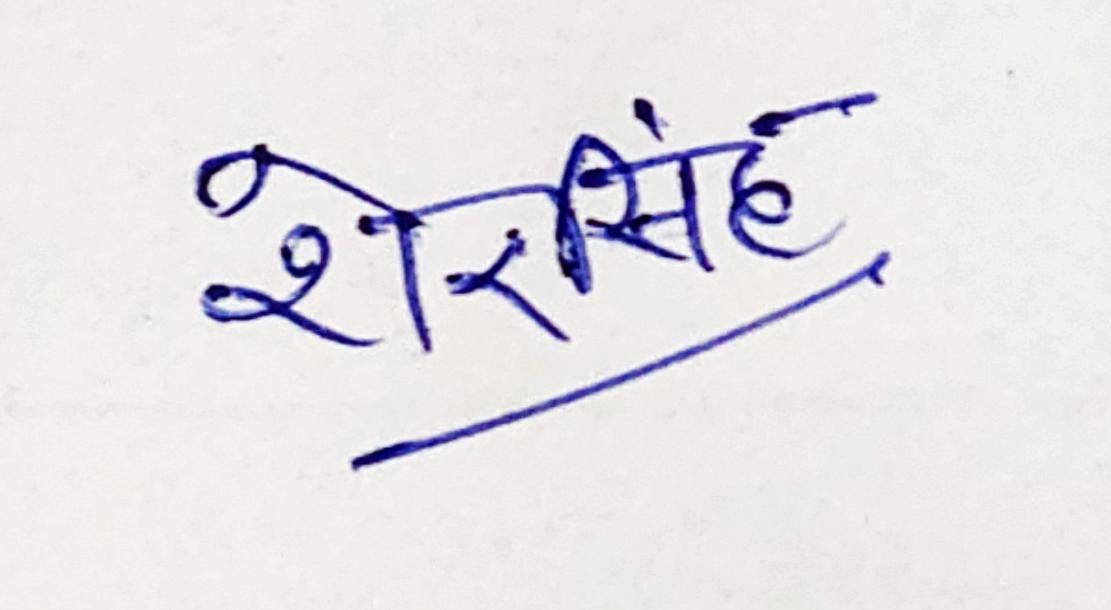 शेरसिंह